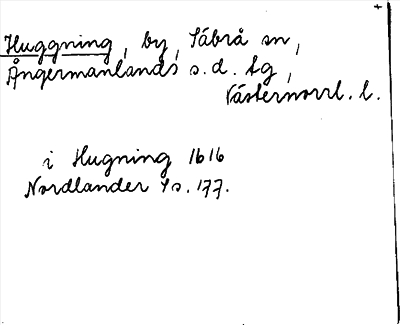 Huggning, by, Säbrå sn,
Ångermanlands s. d. tg,
Västernorrl. l.
i Hugning 1616
Nordlander 1 s. 177.